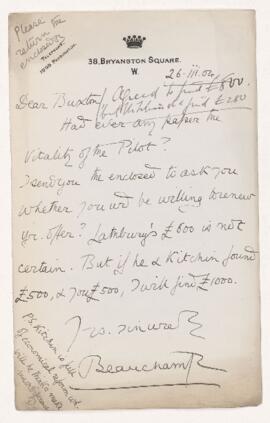 Please
return the
enclosed
TELEPHONE,
1998 PADDINGTON.
38, BRYANSTON SQUARE.
W.
26.iii.02
Agreed to find £500.
if Hitchin a find £200
Dear Buxton
Had ever any paper the
Vitality of the Pilot?
I send you the enclosed to ask you
whether you wd be willing to renew
yr. offer? Lathbury's £600 is not
certain. But if he & Kitchin found
£500, & you £500, I will find £1000.
Yrs. sincerely
Beauchamp
PS. Kitchin is full
of economical reforms wd
will be that a make